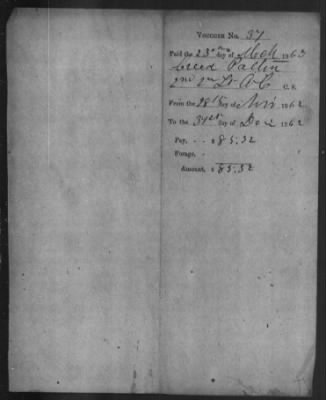 VOUCHER No. 37
Paid the 23rd day of Mch 1863
Creed
Lt C. S.
From the 28th day of Nov 1862
To the 31st day of Dec 1862
Pay, . . $ 85.32
Forage, .
Amount, $ 85.32